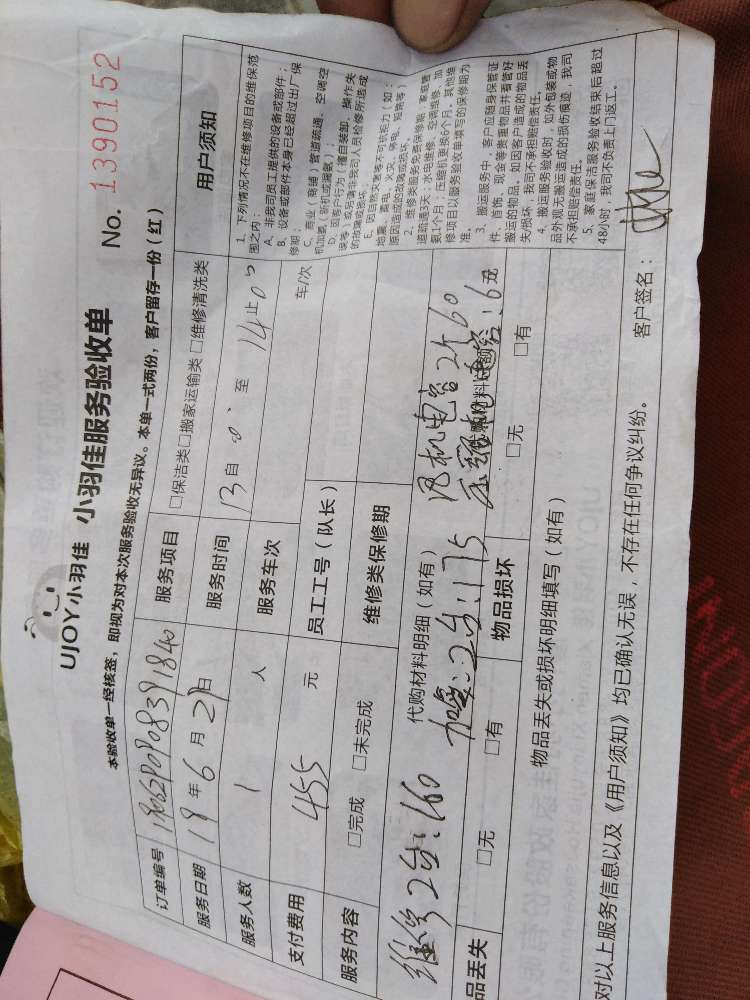 UJOY小羽佳 小羽佳服务验收单
No. 1390152
本验收单一经核签，即视为对本次服务验收无异议。本单一式两份，客户留存一份（红）
订单编号
服务项目 □保洁类□搬家运输类 □维修清洗类
服务日期 19 年 6 月 29 日 服务时间 13 自 0 、 至 14 止 0
服务人数 1 人 服务车次 车/次
支付费用 455 元 员工工号（队长）
服务内容 □完成 □未完成 维修类保修期
代购材料明细（如有） 代购材料总额
维修2台:160 加氟:2台:175 风机电容2个60
压缩机电容:60元
品丢失 □无 □有 物品损坏 □无 □有
物品丢失或损坏明细填写（如有）
用户须知
1. 下列情况不在维修项目的维保范
围之内：
A、非我司员工提供的设备或部件；
B、设备或部件本身已经超过出厂保
修期；
C、商业（商铺）管道疏通、空调空
机加氨（移机或漏氨）；
D、因客户行为（擅自装卸、操作失
误等）或品请非我司人员检修所造成
的故障或损坏；
E、因自然灾害等不可抗拒力（如：
地震、雷电、火灾、停电、短路等）
原因造成的故障或损坏。
2. 维修类服务免费保修期：家庭管
道疏通3天；水电维修、空调维修、加
氨1个月；压缩机更换6个月。其他维
修项目以服务验收单填写的保修期为
准。
3. 搬运服务中，客户应随身保管证
件、首饰、现金等贵重物品并看管好
搬运的物品，如因客户造成的物品丢
失/损坏，我司不承担赔偿责任。
4. 搬运服务验收时，如外包装或物
品外观无搬运造成的损伤痕迹，我司
不承担赔偿责任。
5. 家庭保洁服务验收结束后超过
48小时，我司不负责上门返工。
对以上服务信息以及《用户须知》均已确认无误，不存在任何争议纠纷。 客户签名：